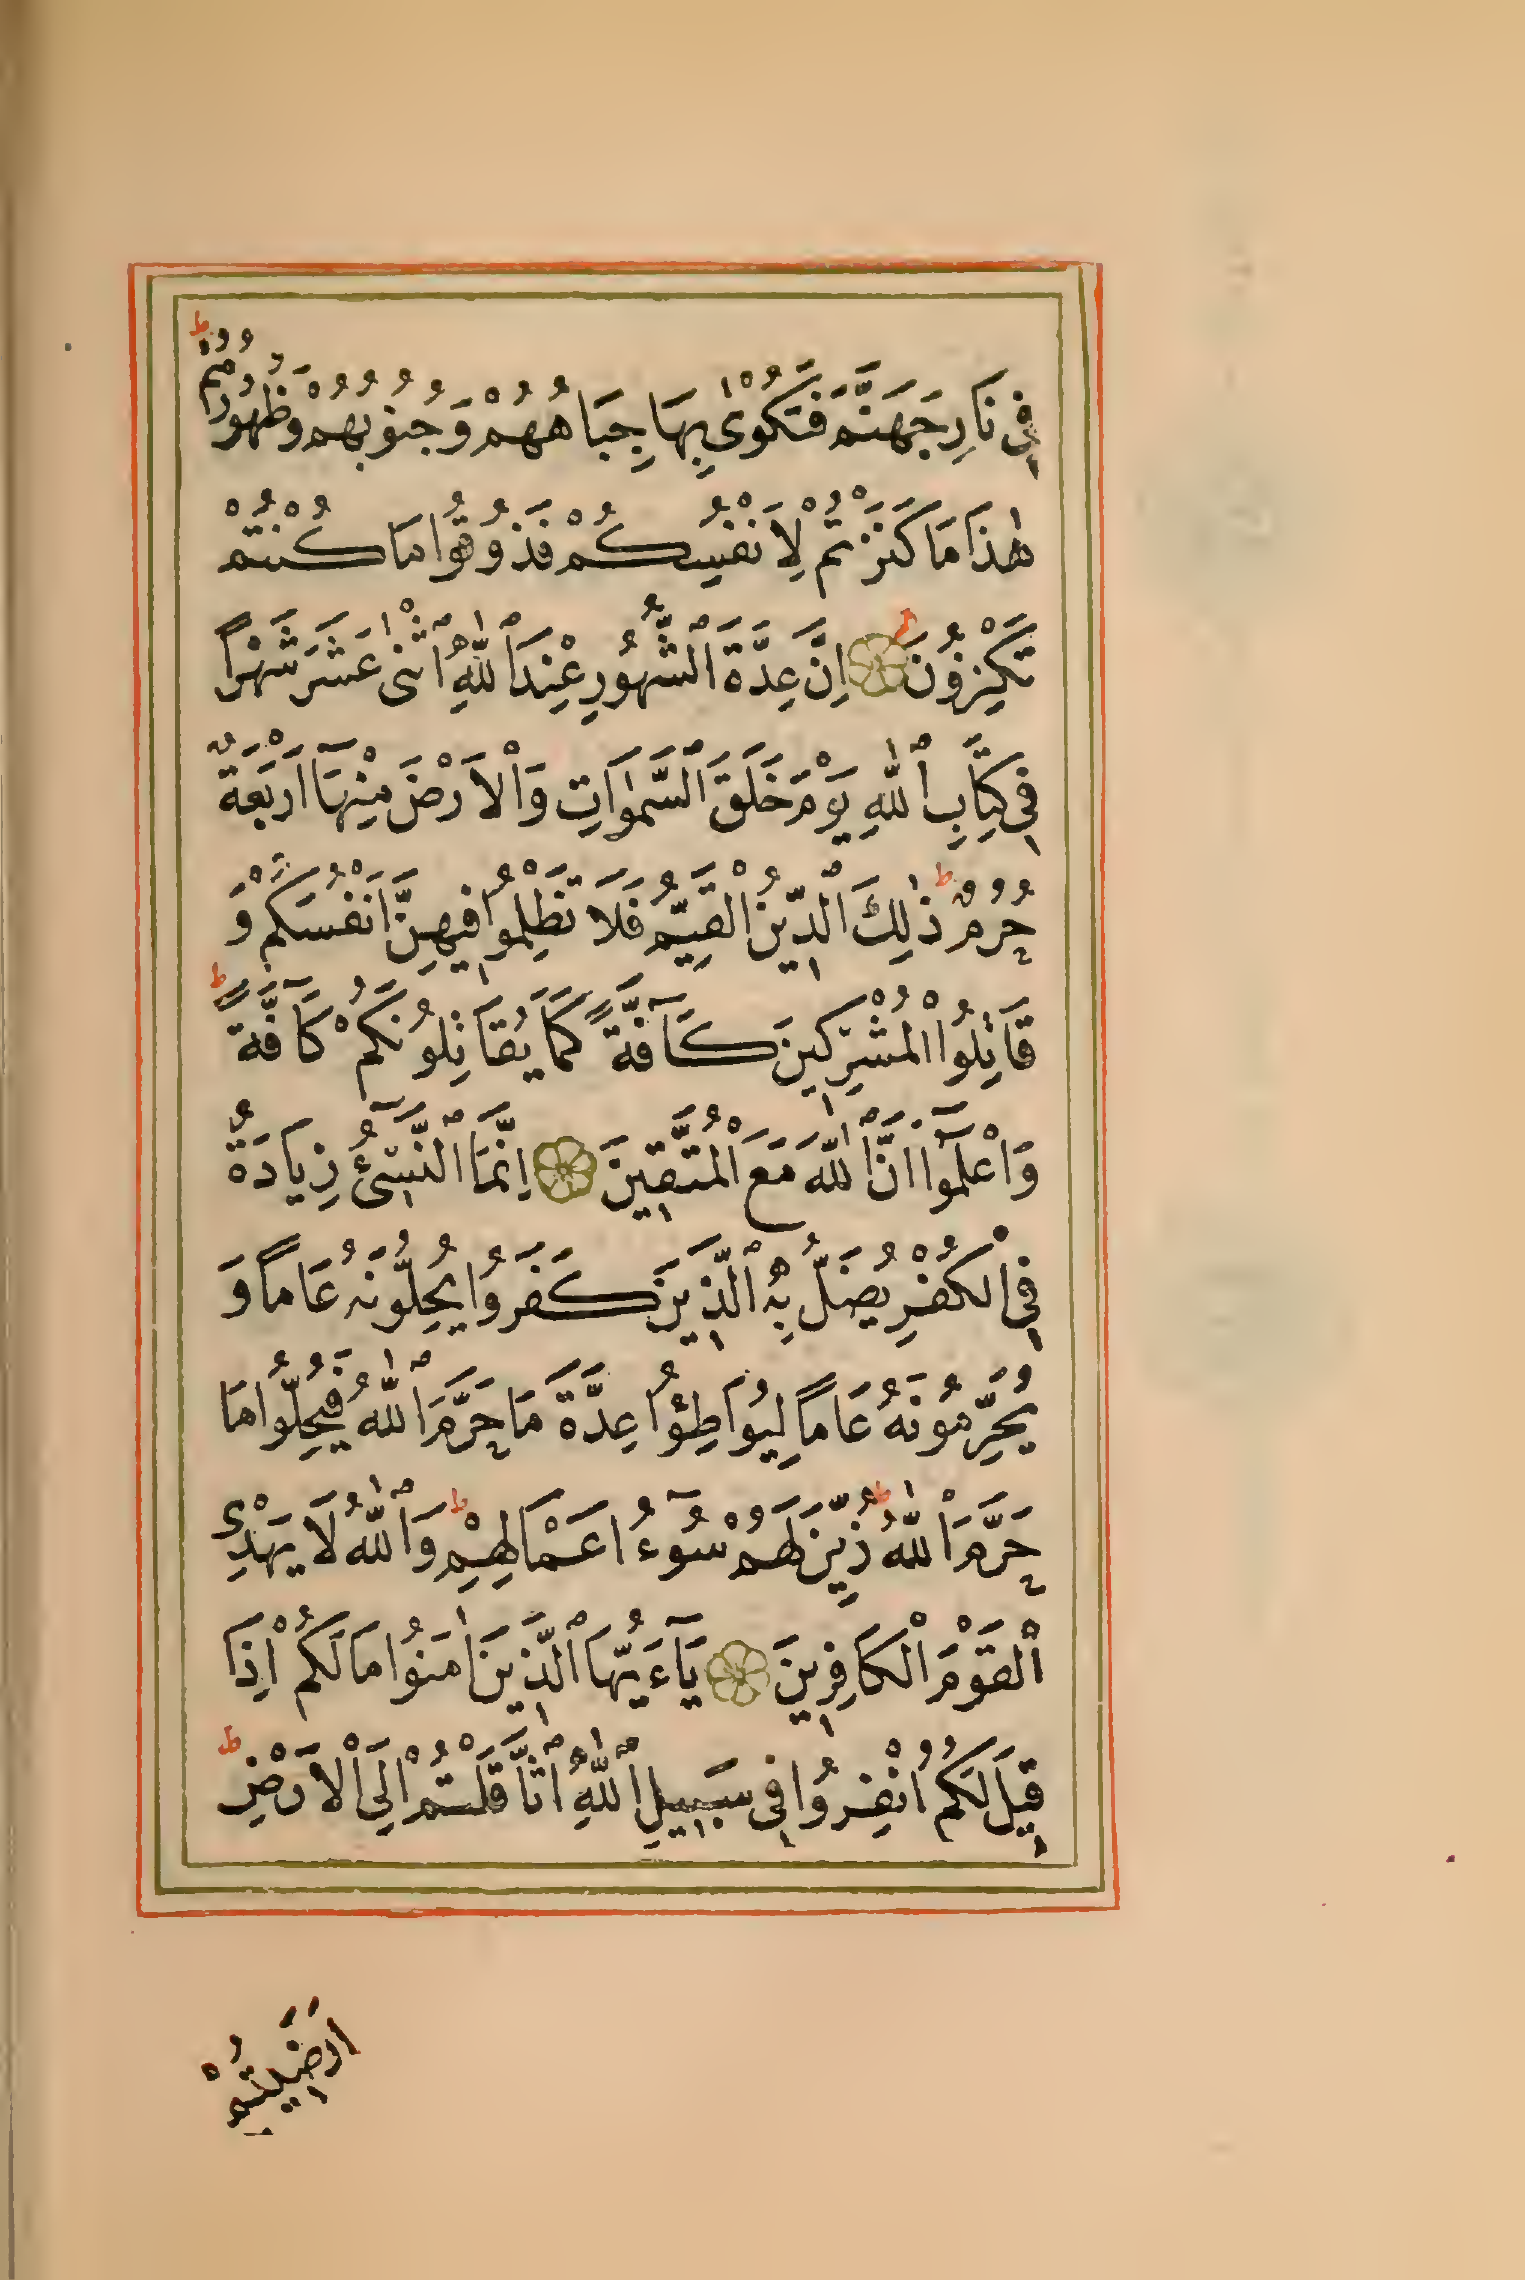 فِى نَارِ جَهَنَّمَ فَتُكْوٰى بِهَا جِبَاهُهُمْ وَجُنُوبُهُمْ وَظُهُورُهُمْ ؕ
هٰذَا مَا كَنَزْتُمْ لِاَنْفُسِكُمْ فَذُوقُوا مَا كُنْتُمْ
تَكْنِزُونَ اِنَّ عِدَّةَ ٱلشُّهُورِ عِنْدَ ٱللّٰهِ ٱثْنٰى عَشَرَ شَهْرًا
فِى كِتَابِ ٱللّٰهِ يَوْمَ خَلَقَ ٱلسَّمٰوَاتِ وَالْاَرْضَ مِنْهَآ اَرْبَعَةٌ
حُرُمٌ ؕ ذٰلِكَ ٱلدِّينُ الْقَيِّمُ فَلَا تَظْلِمُوا فِيهِنَّ اَنْفُسَكُمْ وَ
قَاتِلُوا الْمُشْرِكِينَ كَآفَّةً كَمَا يُقَاتِلُونَكُمْ كَآفَّةً ؕ
وَاعْلَمُوٓا اَنَّ ٱللّٰهَ مَعَ الْمُتَّقِينَ اِنَّمَا ٱلنَّسِىٓءُ زِيَادَةٌ
فِى الْكُفْرِ يُضَلُّ بِهِ ٱلَّذِينَ كَفَرُوا يُحِلُّونَهُ عَامًا وَ
يُحَرِّمُونَهُ عَامًا لِيُوَاطِؤُا عِدَّةَ مَا حَرَّمَ ٱللّٰهُ فَيُحِلُّوا مَا
حَرَّمَ ٱللّٰهُ ؕ زُيِّنَ لَهُمْ سُوٓءُ اَعْمَالِهِمْ ؕ وَٱللّٰهُ لَا يَهْدِى
الْقَوْمَ الْكَافِرِينَ يَآءَيُّهَا ٱلَّذِينَ اٰمَنُوا مَا لَكُمْ اِذَا
قِيلَ لَكُمُ انْفِرُوا فِى سَبِيلِ ٱللّٰهِ ٱثَّاقَلْتُمْ اِلَى الْاَرْضِ ؕ
اَرَضِيتُمْ